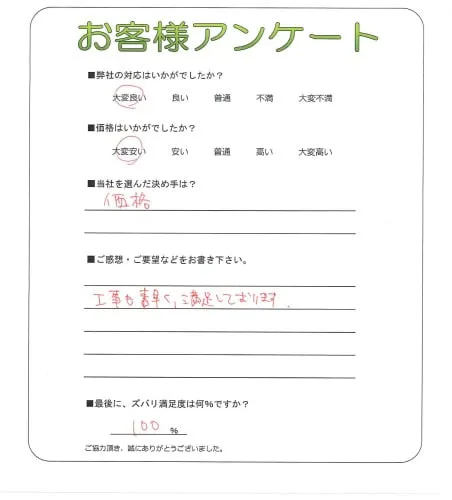 お客様アンケート
■弊社の対応はいかがでしたか？
大変良い 良い 普通 不満 大変不満
■価格はいかがでしたか？
大変安い 安い 普通 高い 大変高い
■当社を選んだ決め手は？
価格
■ご感想・ご要望などをお書き下さい。
工事も早く、満足しております。
■最後に、ズバリ満足度は何%ですか？
100 %
ご協力頂き、誠にありがとうございました。